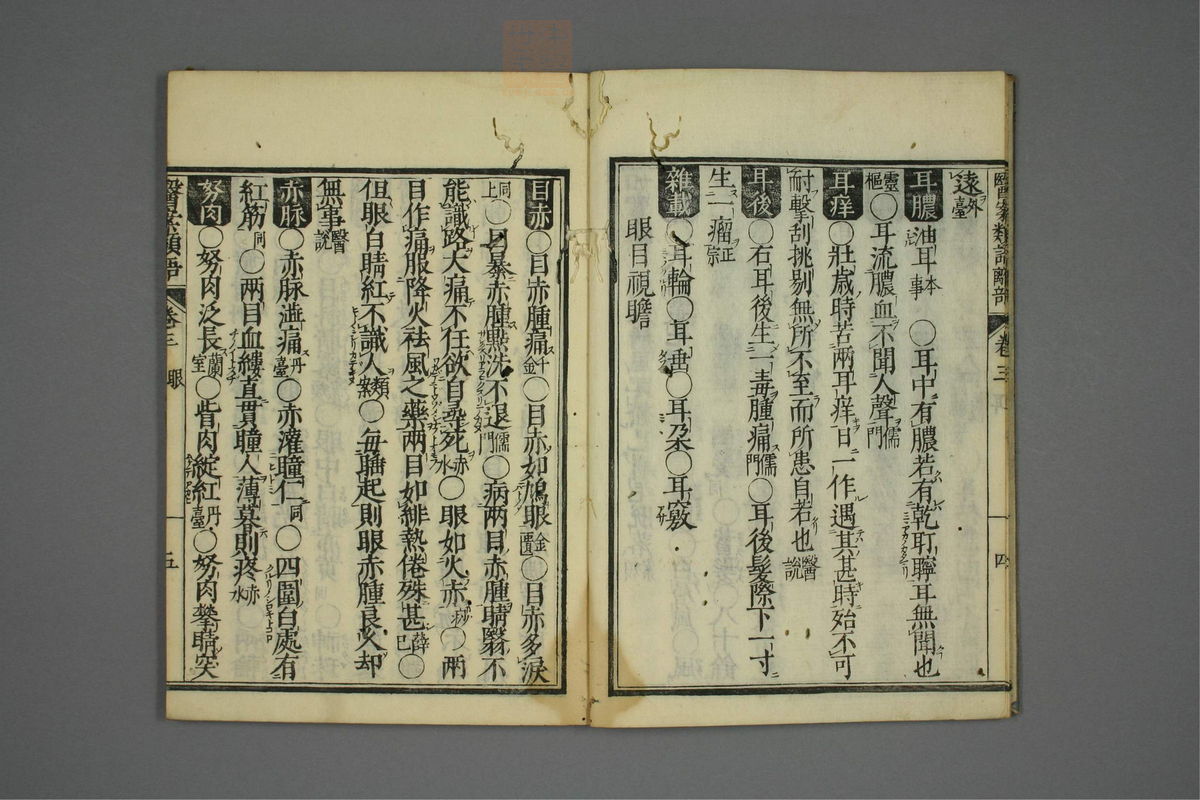 醫案類語離部 卷三 耳 四
遠外臺
耳膿 油耳本事 ○耳中有膿若有乾耵聹耳無聞也
靈樞○耳流膿血不聞人聲儒門
耳痒○壯歳時苦兩耳痒日一作遇其甚時殆不可
耐擊刮挑剔無所不至而所患自若也醫説
耳後○右耳後生一毒腫痛儒門○耳後髮際下一寸
生一瘤正宗
雜載○耳輪○耳垂○耳朶○耳竅
眼目視瞻
目赤○目赤腫痛千金○目赤如鳩眼金匱○目赤多淚
同上○目暴赤腫點洗不退儒門○病兩目赤腫睛翳不
能識路大痛不任欲自尋死赤水○眼如火赤○兩
目作痛服降火祛風之藥兩目如緋熱倦殊甚薛己○
但眼白睛紅不識人類案○毎睡起則眼赤腫良久却
無事醫説
赤脉○赤脉澁痛丹臺○赤灌瞳仁同○四圍白處有
紅筋同○兩目血縷直貫瞳人薄暮則疼赤水
努肉○努肉泛長蘭室○眥肉綻紅丹臺○努肉攀睛突
醫案類語 卷三 眼 五